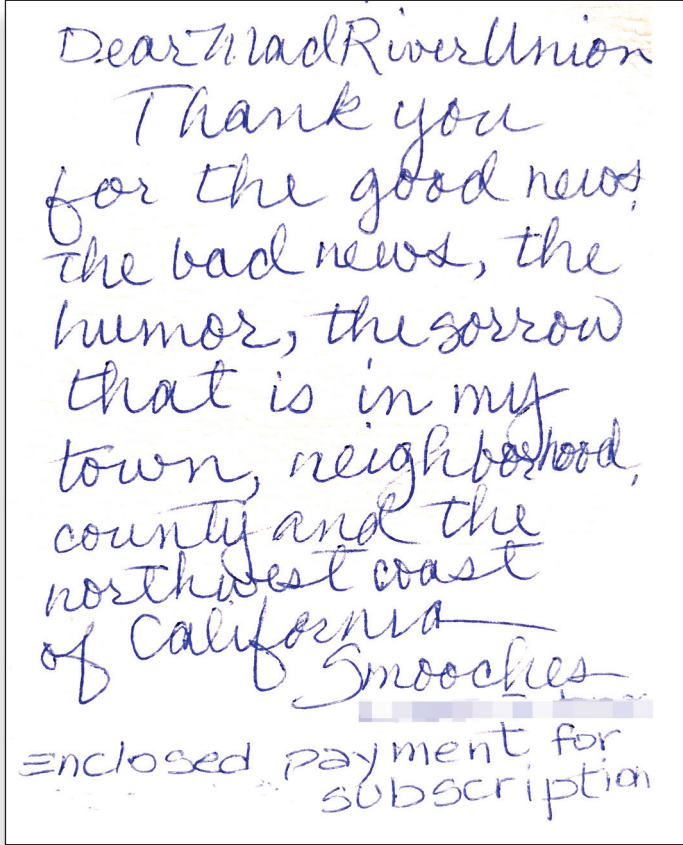 Dear Mad River Union
Thank you
for the good news,
the bad news, the
humor, the sorrow
that is in my
town, neighborhood,
county and the
northwest coast
of California
Smooches
Enclosed payment for
subscription